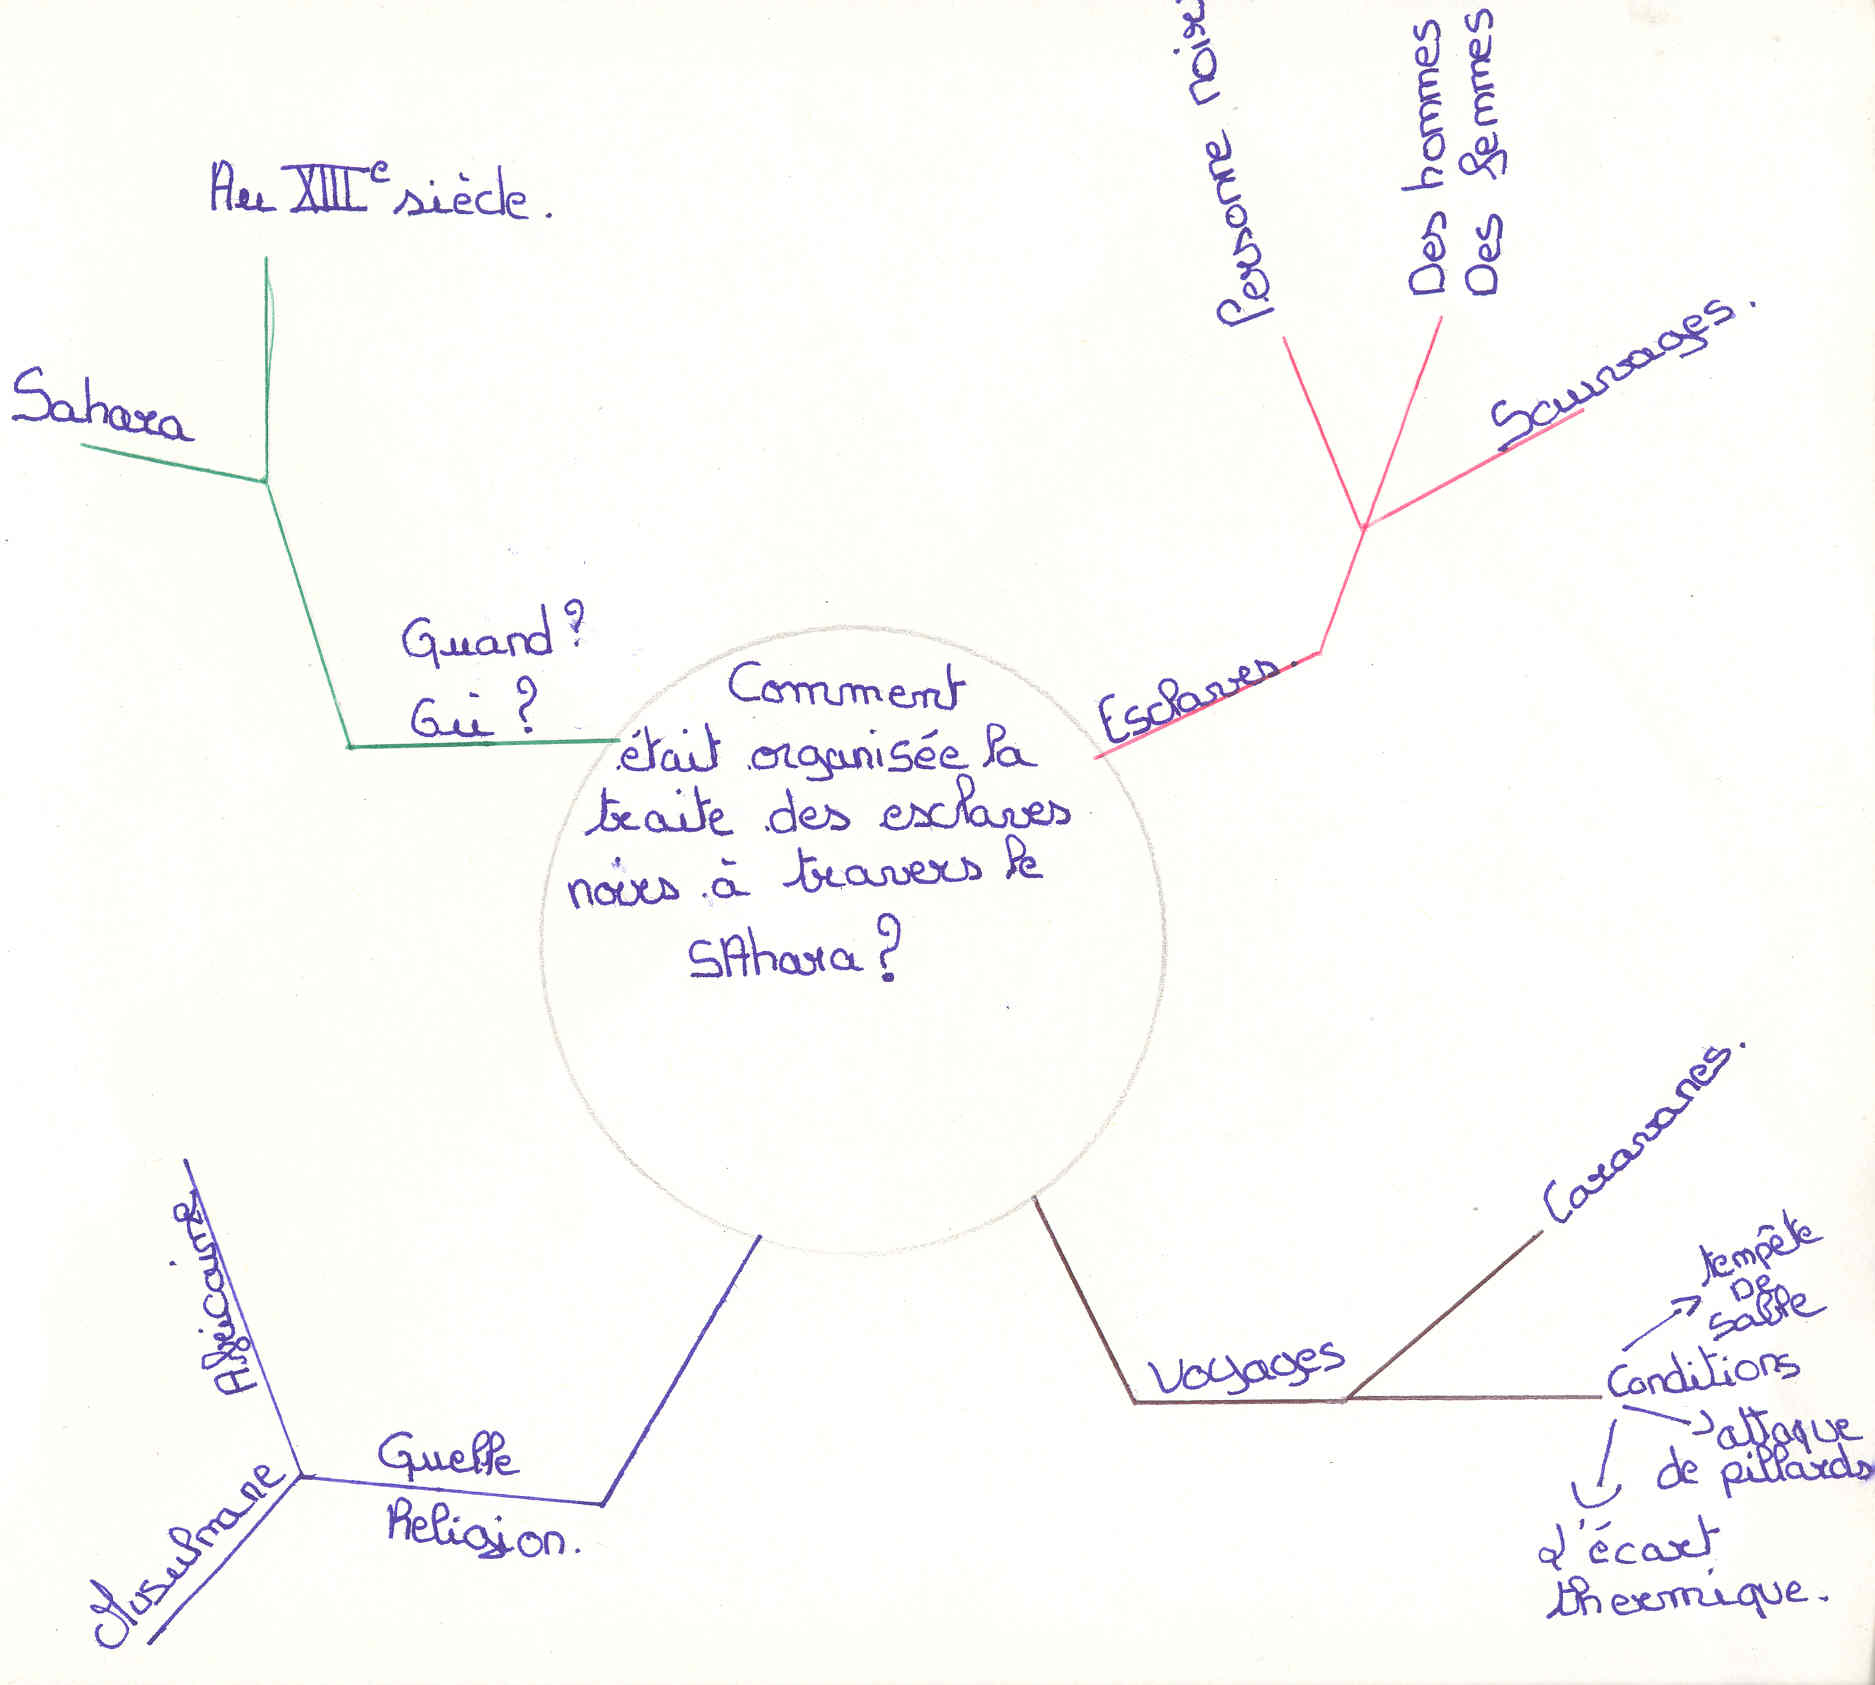 Au XIIIe siècle.
Sahara
Quand?
Où?
Comment
était organisée la
traite des esclaves
noirs à travers le
SAhara?
Esclaves.
Personne noire
Des hommes
Des femmes
Sauvages.
Voyages
Caravanes.
Conditions
tempête
De
sable
attaque
de pillards
l'écart
thermique.
Quelle
Religion.
Africaine
Musulmane